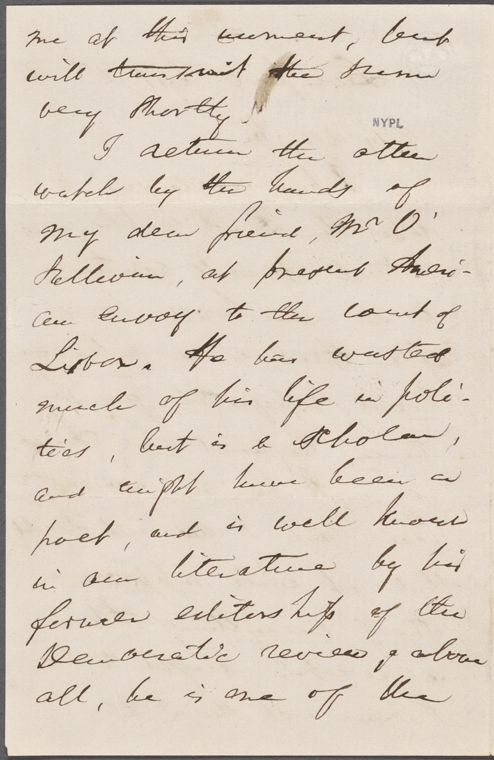 me at this moment, but
will transmit the same
very shortly.
NYPL
I return the other
watch by the hands of
my dear friend, Mr O'
Sullivan, at present Ameri-
can Envoy to the court of
Lisbon. He has wasted
much of his life in poli-
tics, but is a scholar,
and might have been a
poet, and is well known
in our literature by his
former editorship of the
Democratic review; above
all, he is one of the